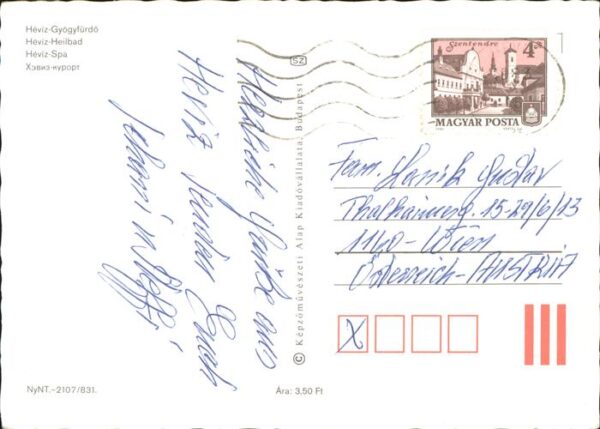 Hévíz-Gyógyfürdő
Hévíz-Heilbad
Hévíz-Spa
Хэвиз-курорт
Herzliche Grüße aus
Heviz senden Euch
Johann u.
SZ
© Képzőművészeti Alap Kiadóvállalata, Budapest
Szentendre
4 Ft
MAGYAR POSTA
1
Fam. Gustav
15-29/6/13
1160 - Wien
Österreich - AUSTRIA
X
NyNT.-2107/831.
Ára: 3,50 Ft